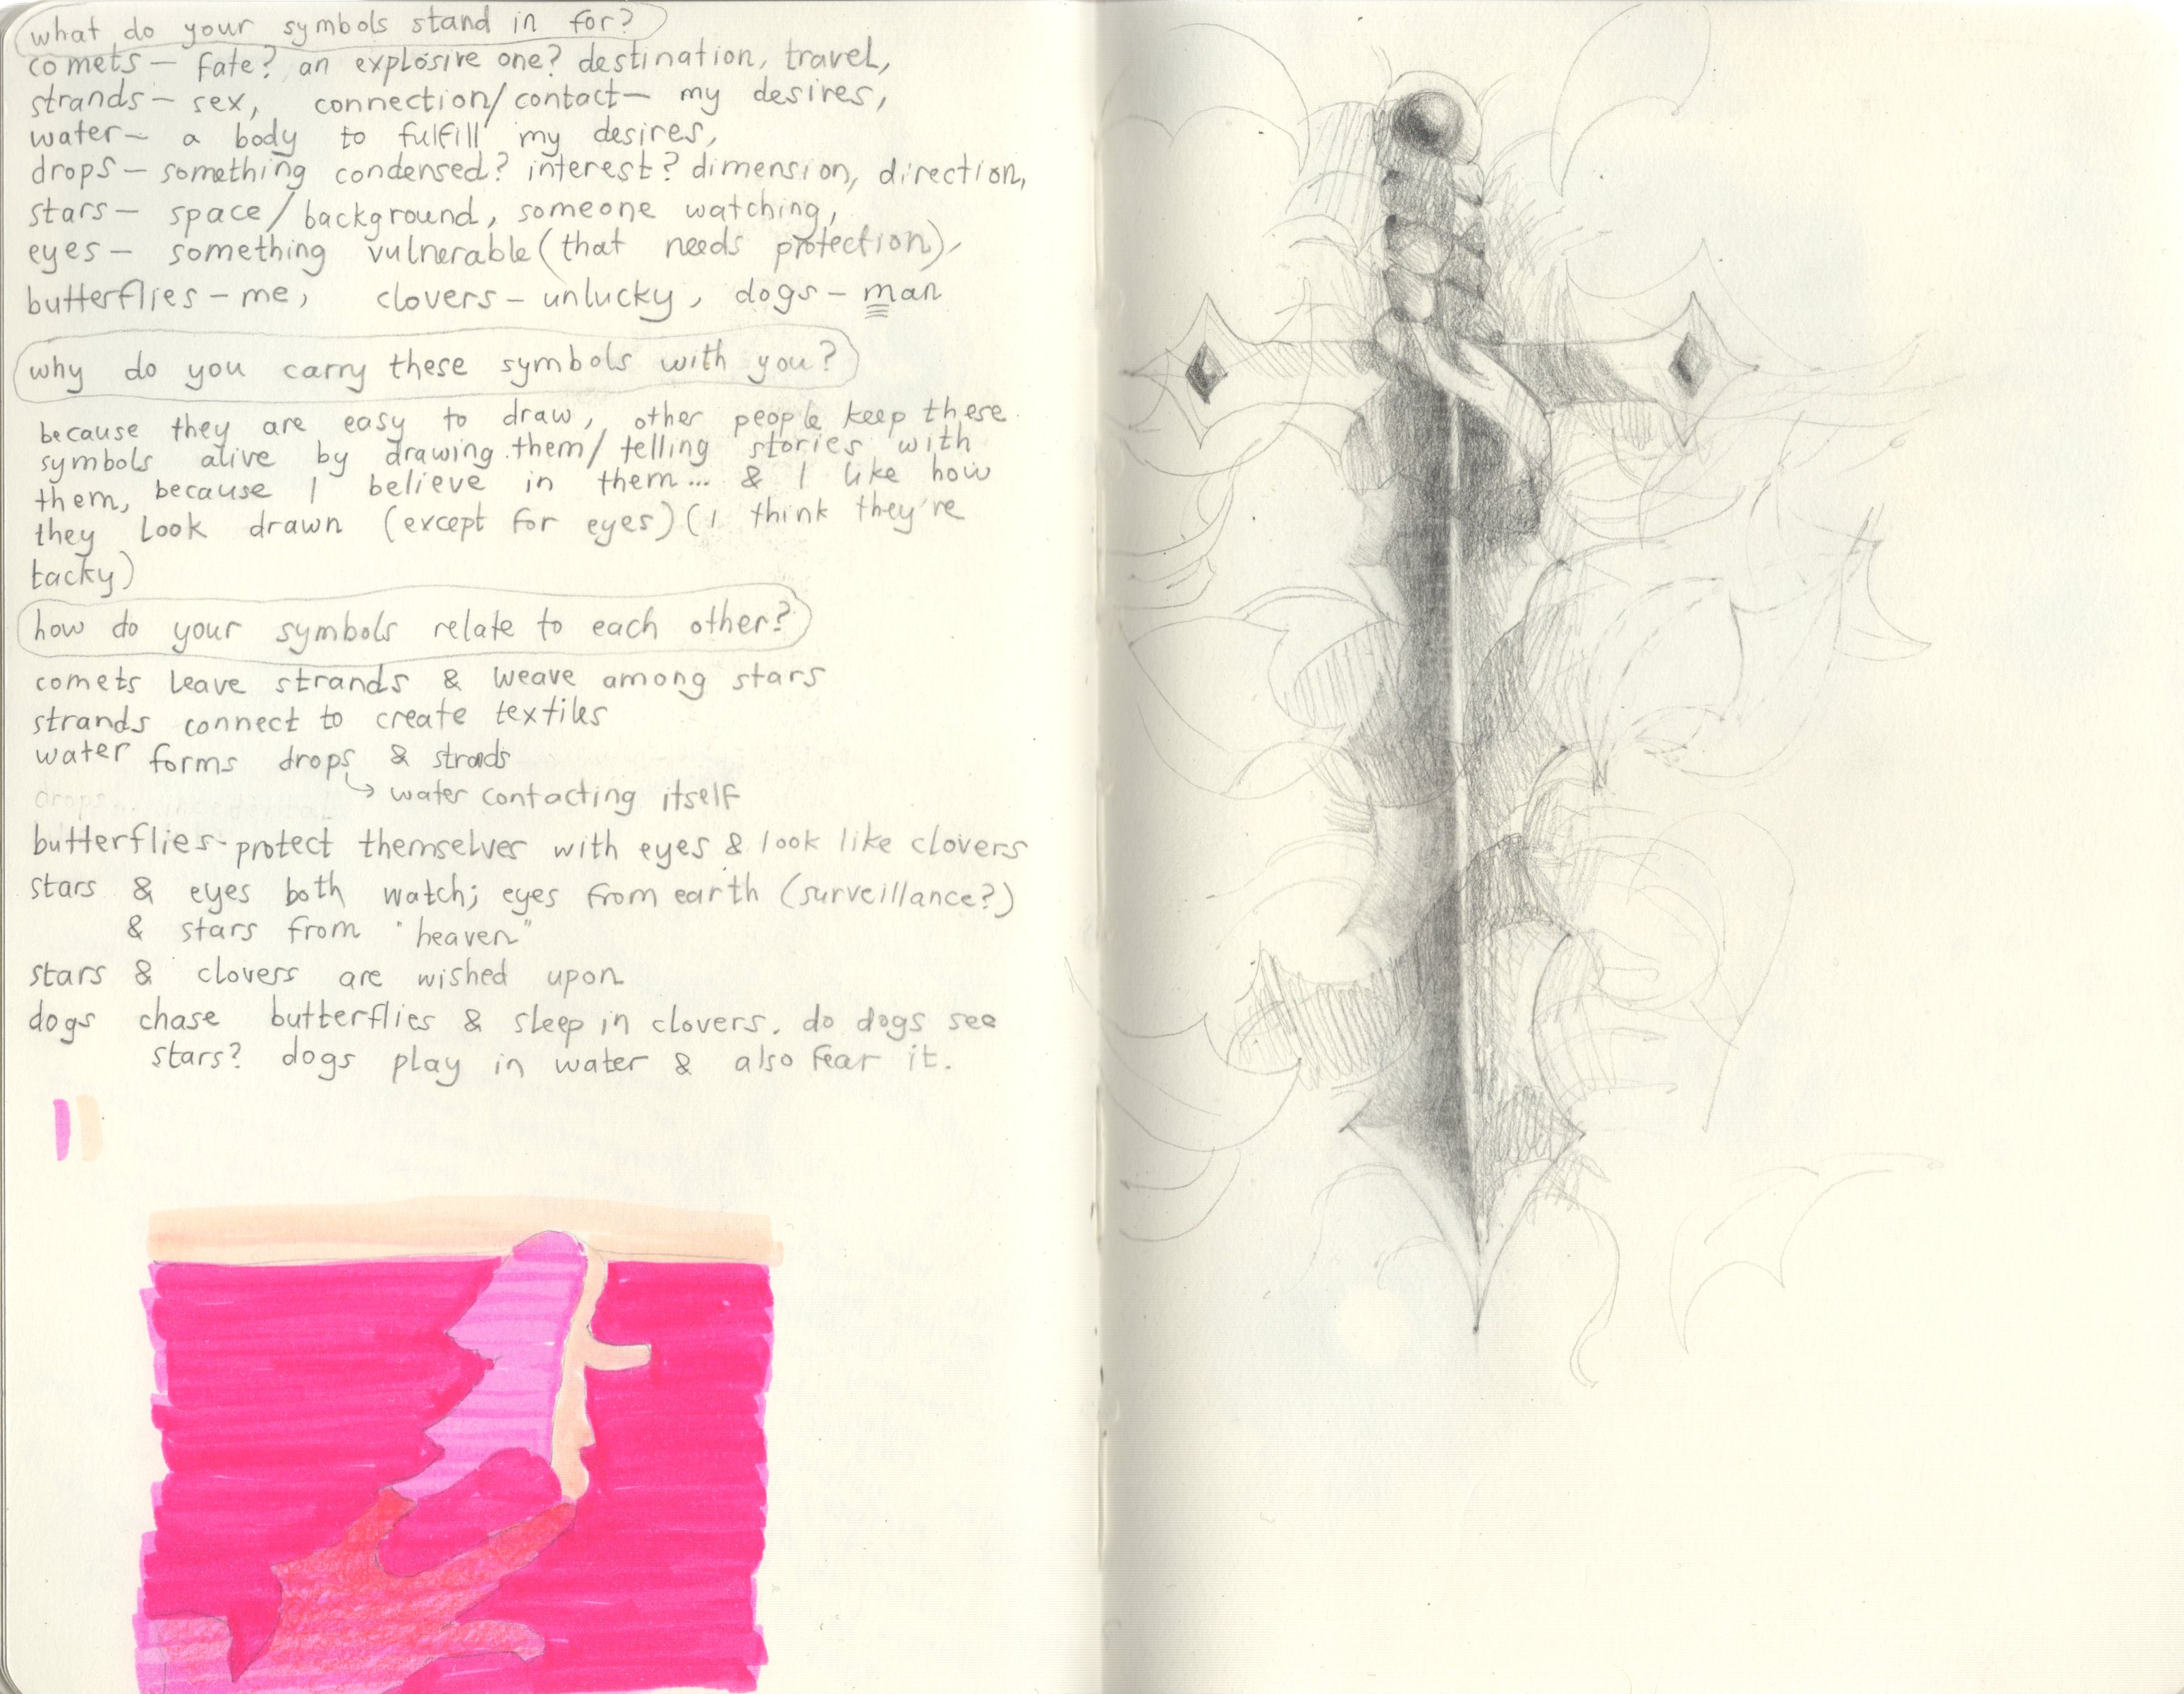 what do your symbols stand in for?
comets — fate? an explosive one? destination, travel,
strands — sex, connection/contact — my desires,
water — a body to fulfill my desires,
drops — something condensed? interest? dimension, direction,
stars — space/background, someone watching,
eyes — something vulnerable (that needs protection),
butterflies — me, clovers — unlucky, dogs — man
why do you carry these symbols with you?
because they are easy to draw, other people keep these
symbols alive by drawing them/telling stories with
them, because I believe in them... & I like how
they look drawn (except for eyes) (I think they're
tacky)
how do your symbols relate to each other?
comets leave strands & weave among stars
strands connect to create textiles
water forms drops & strands
↳ water contacting itself
drops...
butterflies protect themselves with eyes & look like clovers
stars & eyes both watch; eyes from earth (surveillance?)
& stars from "heaven"
stars & clovers are wished upon
dogs chase butterflies & sleep in clovers. do dogs see
stars? dogs play in water & also fear it.